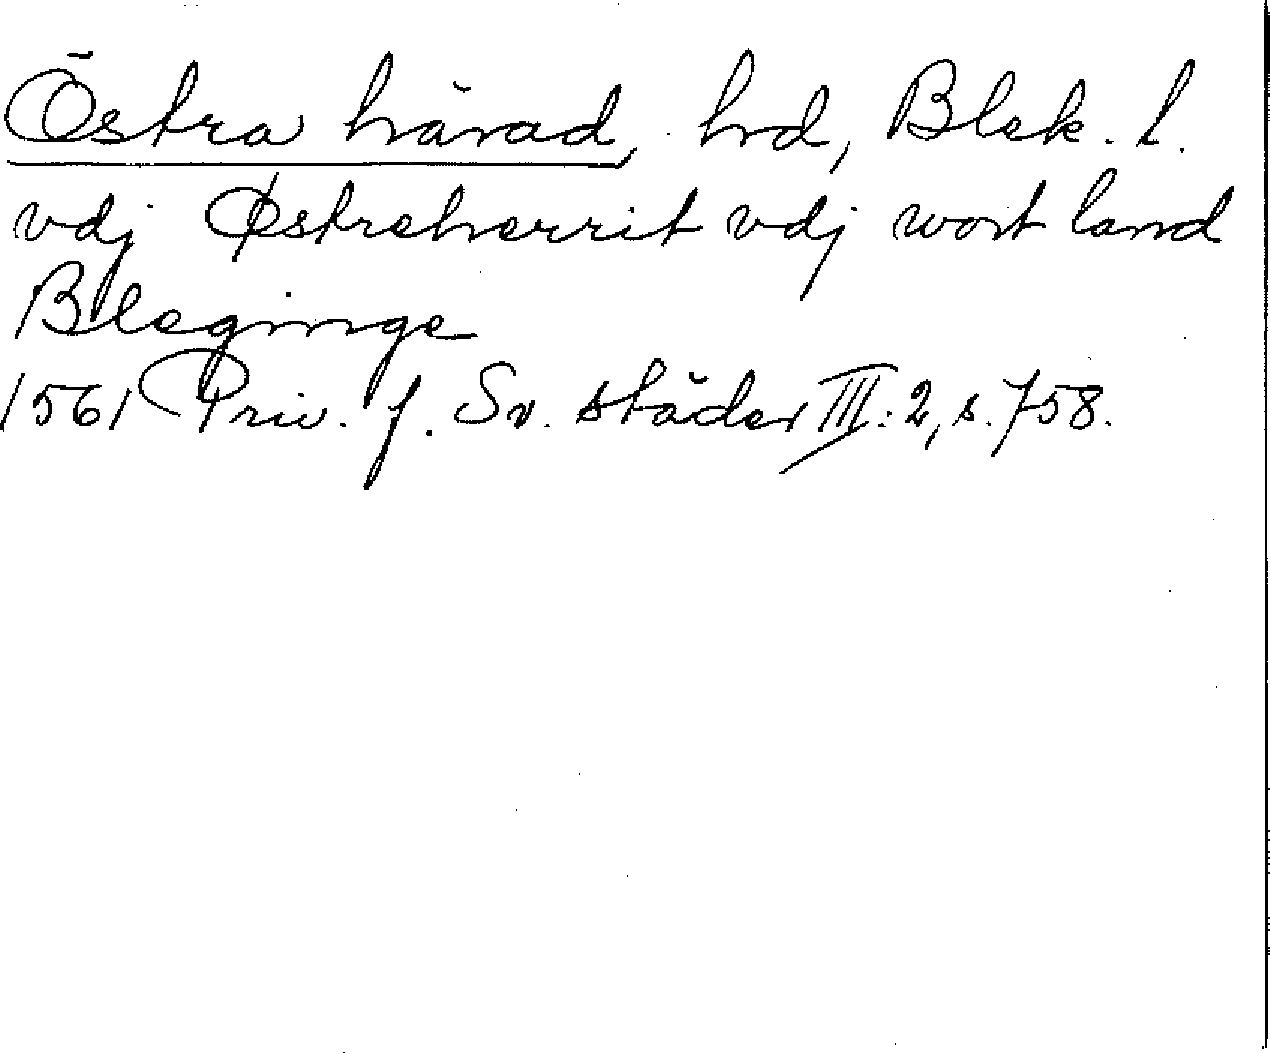 Östra härad, hrd, Blek. l.
vdj Østreherrit vdj wort land
Bleginge
1561 Priv. f. Sv. städer III:2, s. 758.